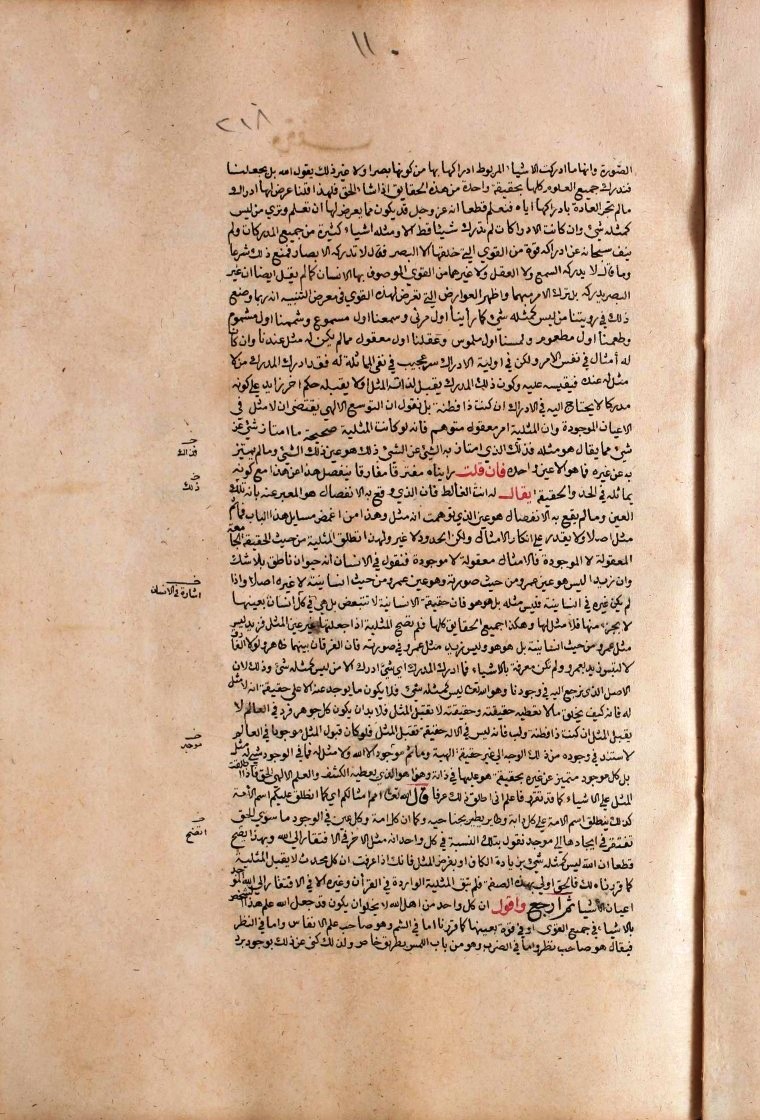 ١١
٢١٨
الصورة وانها ما ادركت الاشياء المربوط ادراكها بها من كونها بصرا ولا غير ذلك يقول الله بل يجعلنا
فندرك جميع العلوم كلها بحقيقة واحدة من هذه الحقايق اذا شاء الحق فلهذا قلنا عرض لها ادراك
ما لم تجر العادة بادراكها اياه فتعلم قطعا انه عز وجل قد يكون مما يعرض لها ان تعلم وترى من ليس
كمثله شئ وان كانت الادراكات لم تدرك شيئا قط الا ومثله اشياء كثيرة من جميع المدركات ولم
ينف سبحانه عن ادراكه قوة من القوى التي خلقها الا البصر فقال لا تدركه الابصار فمنع ذلك شرعا
وما قال لا يدركه السمع ولا العقل ولا غيرهما من القوى الموصوف بها الانسان كما لم يقل ايضا ان غير
البصر يدركه بل ترك الامر مبهما واظهر العوارض التي تعرض لهذه القوى في معرض التنبيه انه ربما وضع
ذلك في رويتنا من ليس كمثله شئ كما رأينا اول مرئي وسمعنا اول مسموع وشممنا اول مشموم
وطعمنا اول مطعوم ولمسنا اول ملموس وعقلنا اول معقول مما لم يكن له مثل عندنا وان كان
له أمثال في نفس الامر ولكن في اولية الادراك سر عجيب في نفي المماثلة له فقد ادرك المدرك من لا
مثل له عنده فيقيسه عليه وكون ذلك المدرك يقبل لذاته المثل او لا يقبله حكم اخر زايد على كونه
مدركا لا يحتاج اليه في الادراك ان كنت ذا فطنة بل نقول ان التوسع الالهي يقتضى ان لا مثل في
الاعيان الموجودة وان المثلية امر معقول متوهم فانه لو كانت المثلية صحيحة ما امتاز شئ عن
شئ مما يقال هو مثله فذلك الذي امتاز به الشئ عن الشئ ذلك هو عين ذلك الشئ وما لم يتميز
به عن غيره فما هو الا عين واحدة فان قلت رايناه مفترقا مفارقا ينفصل هذا عن هذا مع كونه
يماثله في الحد والحقيقة يقال له انت الغالط فان الذي وقع به الانفصال هو المعبر عنه بانه تلك
العين وما لم يقع به الانفصال هو عين الذي توهمت انه مثل وهذا من اغمض مسايل هذا الباب فما ثم
مثل اصلا ولا يقدر على انكار الامثال ولكن بالحدود لا غير ولهذا انطلق المثلية من حيث الحقيقة الجامعة
المعقولة لا الموجودة فالامثال معقولة لا موجودة فنقول في الانسان انه حيوان ناطق بلا شك
وان زيدا ليس هو عين عمرو من حيث صورته وهو عين عمرو من حيث انسانيته لا غيره اصلا واذا
لم يكن غيره في انسانيته فليس مثله بل هو هو فان حقيقة الانسانية لا تتبعض بل هي في كل انسان بعينها
لا بجزءيتها فلا مثل لها وهكذا جميع الحقايق كلها فلم تصح المثلية اذا جعلتها غير عين المثل فزيد ليس
مثل عمرو من حيث انسانيته بل هو هو وليس زيد مثل عمرو في صورته فان الفرقان بينهما ظاهر ولولا الفارق
لالتبس زيد بعمرو ولم تكن معرفة بالاشياء فما ادرك المدرك اي شئ ادرك الا من ليس كمثله شئ وذلك لان
الاصل الذي نرجع اليه في وجودنا وهو الله تعالى ليس كمثله شئ فلا يكون ما يوجد عنه الا على حقيقة انه لا مثل
له فانه كيف يخلق ما لا تعطيه حقيقته وحقيقته لا تقبل المثل فلا بد ان يكون كل جوهر فرد في العالم لا
يقبل المثل ان كنت ذا فطنة ولب فانه ليس في الاله حقيقة تقبل المثل فلو كان قبول المثل موجودا في العالم
لاستند في وجوده من ذلك الوجه الى غير حقيقة الهية وما ثم موجود الا الله ولا مثل له فما في الوجود شئ له مثل
بل كل موجود متميز عن غيره بحقيقة هو عليها في ذاته وهذا هو الذي يعطيه الكشف والعلم الالهي الحق فاذا اطلقت
المثل على الاشياء كما قد تقرر فاعلم اني اطلق ذلك عرفا قال الله تعالى امم امثالكم اي كما انطلق عليكم اسم الامة
كذلك ينطلق اسم الامة على كل دابة وطاير يطير بجناحيه وكما ان كل امة وكل عين في الوجود ما سوى الحق
تفتقر في ايجادها الى موجد نقول بتلك النسبة في كل واحد انه مثل الاخر في الافتقار الى الله وبهذا يصح
قطعا ان الله ليس كمثله شئ بزيادة الكاف او بفرض المثل فانك اذا عرفت ان كل محدث لا يقبل المثلية
كما قررناه لك فالحق اولى بهذه الصفة فلم تبق المثلية الواردة في القرآن وغيره الا في الافتقار الى الله الموجد
اعيان الاشيا ثم ارجع واقول ان كل واحد من اهل الله لا يخلو ان يكون قد جعل الله علم هذا الشخص
بالاشياء في جميع القوى او في قوة بعينها كما قررنا اما في الشم وهو صاحب علم الانفاس واما في النظر
فيقال هو صاحب نظر واما في الضرب وهو من باب اللمس بطريق خاص ولذلك كنى عن ذلك بوجود برد
فذلك
ذلك
اشارة في الانسان
موجد
اتضح